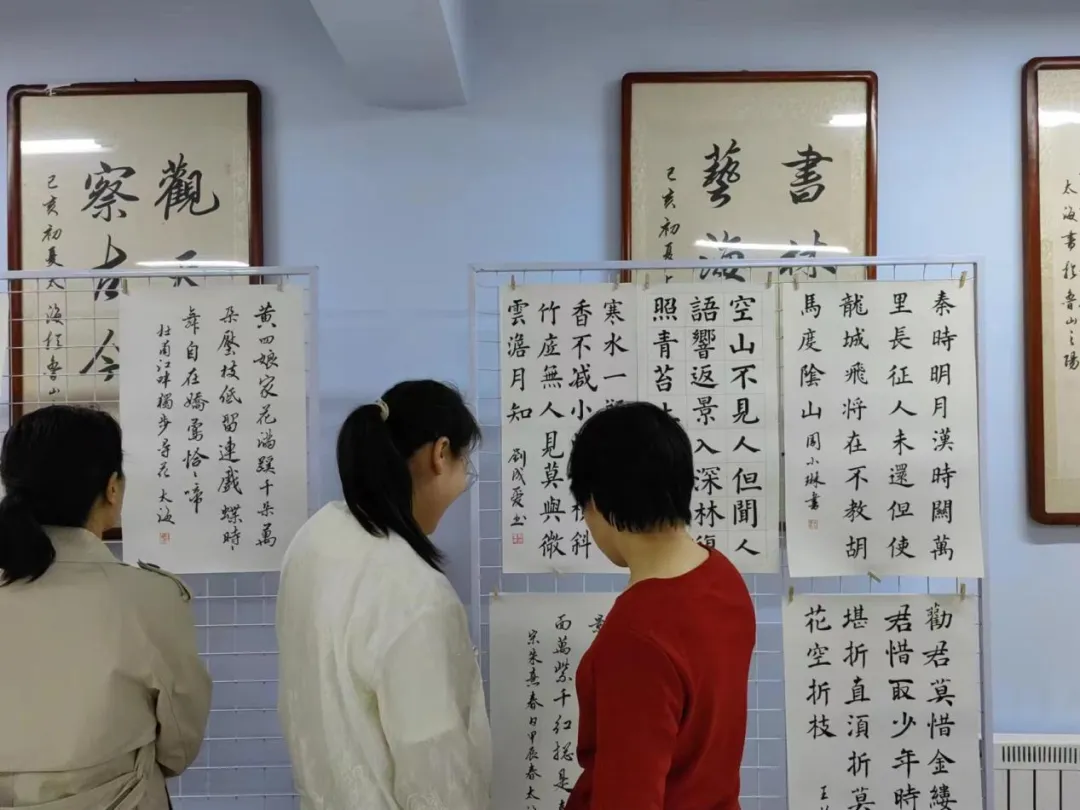 觀天
察古今
己亥初夏太海於魯山
書林
藝海
己亥初夏
太海書於魯山之陽
黄四娘家花滿蹊千朵萬
朵壓枝低留連戲蝶時〻
舞自在嬌鶯恰〻啼
杜甫江畔獨步尋花 太海
寒水一
香不减小 斜
竹底無人見莫與微
雲澹月知 劉成愛书
空山不見人但聞人
語響返景入深林復
照青苔
秦時明月漢時關萬
里長征人未還但使
龍城飛将在不教胡
馬度陰山 周小琳書
面萬紫千紅總是
宋朱熹春日甲辰春太
勸君莫惜金縷
君惜取少年時
堪折直須折莫
花空折枝 王